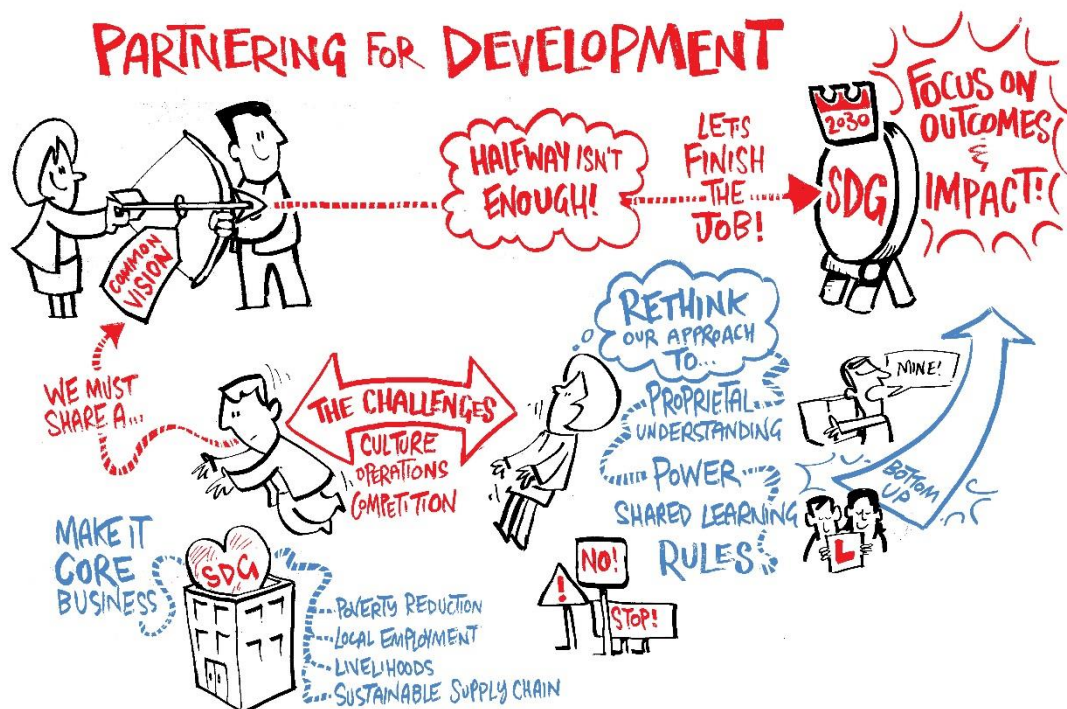 PARTNERING FOR DEVELOPMENT
COMMON
VISION
HALFWAY ISN'T
ENOUGH!
LET'S
FINISH
THE
JOB!
2030
SDG
FOCUS ON
OUTCOMES
&
IMPACT!
WE MUST
SHARE A...
THE CHALLENGES
CULTURE
OPERATIONS
COMPETITION
RETHINK
OUR APPROACH
TO...
PROPRIETAL
UNDERSTANDING
POWER
SHARED LEARNING
RULES
MINE!
BOTTOM
UP
L
MAKE IT
CORE
BUSINESS
SDG
POVERTY REDUCTION
LOCAL EMPLOYMENT
LIVELIHOODS
SUSTAINABLE SUPPLY CHAIN
!
NO!
STOP!